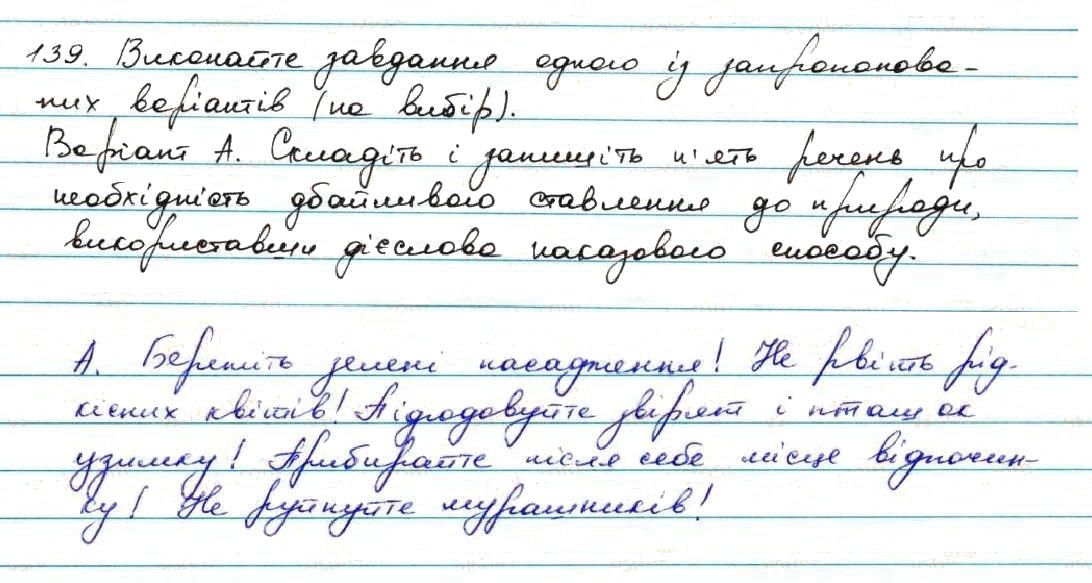 139. Виконайте завдання одного із запропонова-
них варіантів (на вибір).
Варіант А. Складіть і запишіть п'ять речень про
необхідність дбайливого ставлення до природи,
використавши дієслова наказового способу.
А. Бережіть зелені насадження! Не рвіть рід-
кісних квітів! Підгодовуйте звірят і пташок
узимку! Прибирайте після себе місце відпочин-
ку! Не руйнуйте мурашників!